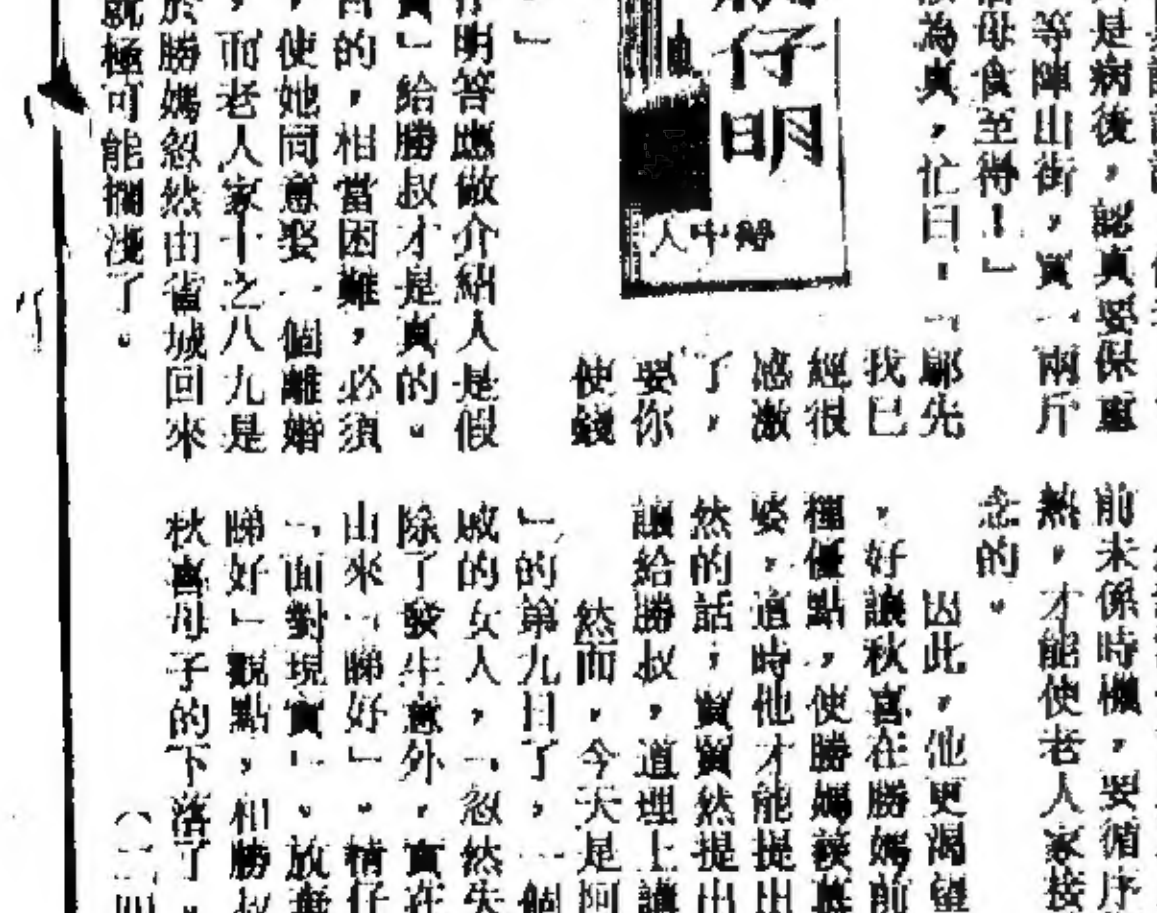 是病後，認真要保重
等陣山街，買一兩斤
母食至得！」
為真，忙曰：「鄺先
我已
經很
感激
了，
要你
使錢
仔明
人中
仔明答應做介紹人是假
」給勝叔才是真的。
的，相當困難，必須
，使她同意娶一個離婚
，而老人家十之八九是
於勝媽忽然由省城回來
就極可能擱淺了。
前未係時機，要循序
熱，才能使老人家接
念的。
因此，他更渴望
，好讓秋喜在勝媽前
種優點，使勝媽
婆，這時他才能提出
然的話，貿貿然提出
讓給勝叔，道理上講
然而，今天是阿
」的第九日了，一個
戚的女人，「忽然失
除了發生意外，實在
山來「睇好」。精仔
「面對現實」。放棄
睇好」觀點，相勝叔
秋喜母子的下落了。